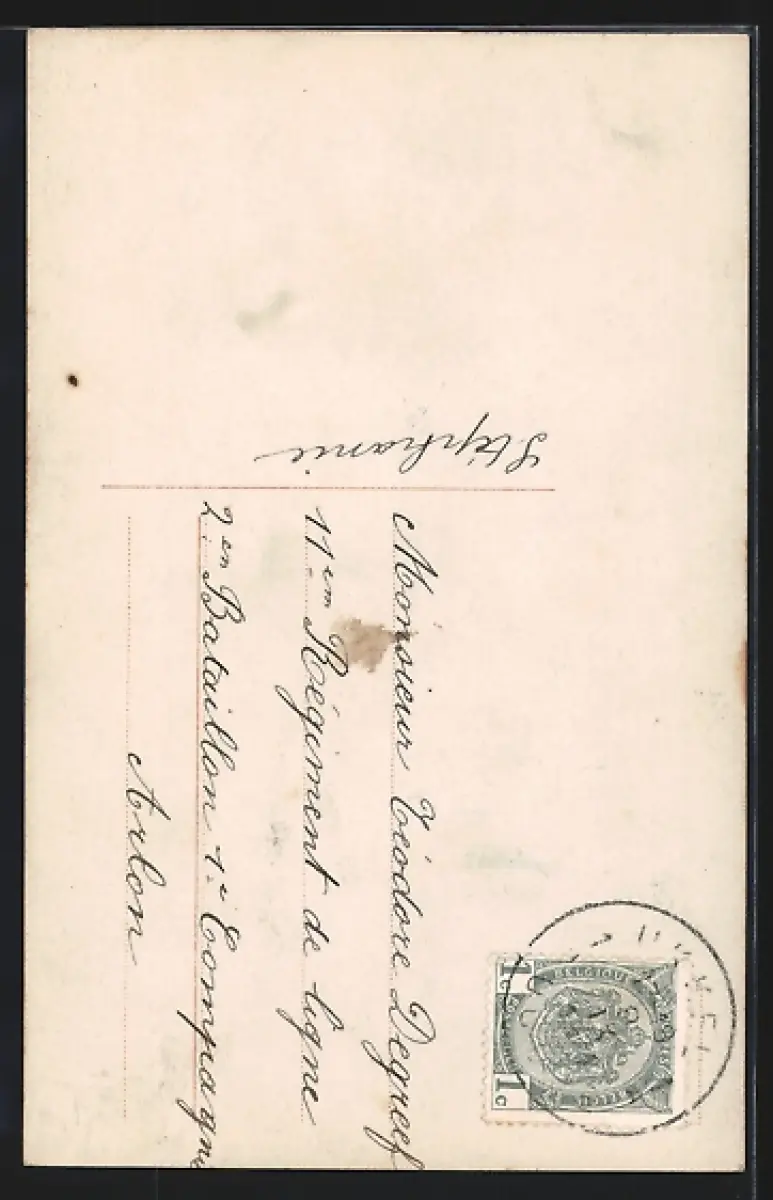 Stéphanie
Monsieur Téodore Degreef
11em Régiment de ligne
2en Bataillon 1re Compagne
Arlon
BELGIQUE
1c 1c